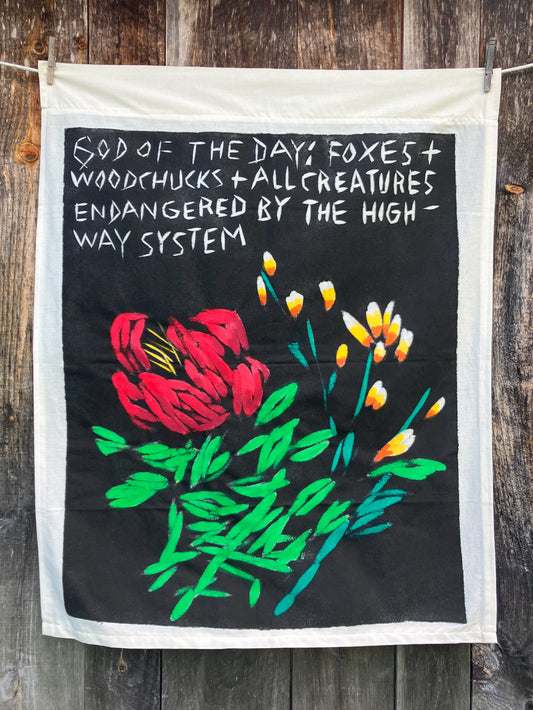 GOD OF THE DAY: FOXES +
WOODCHUCKS + ALL CREATURES
ENDANGERED BY THE HIGH-
WAY SYSTEM